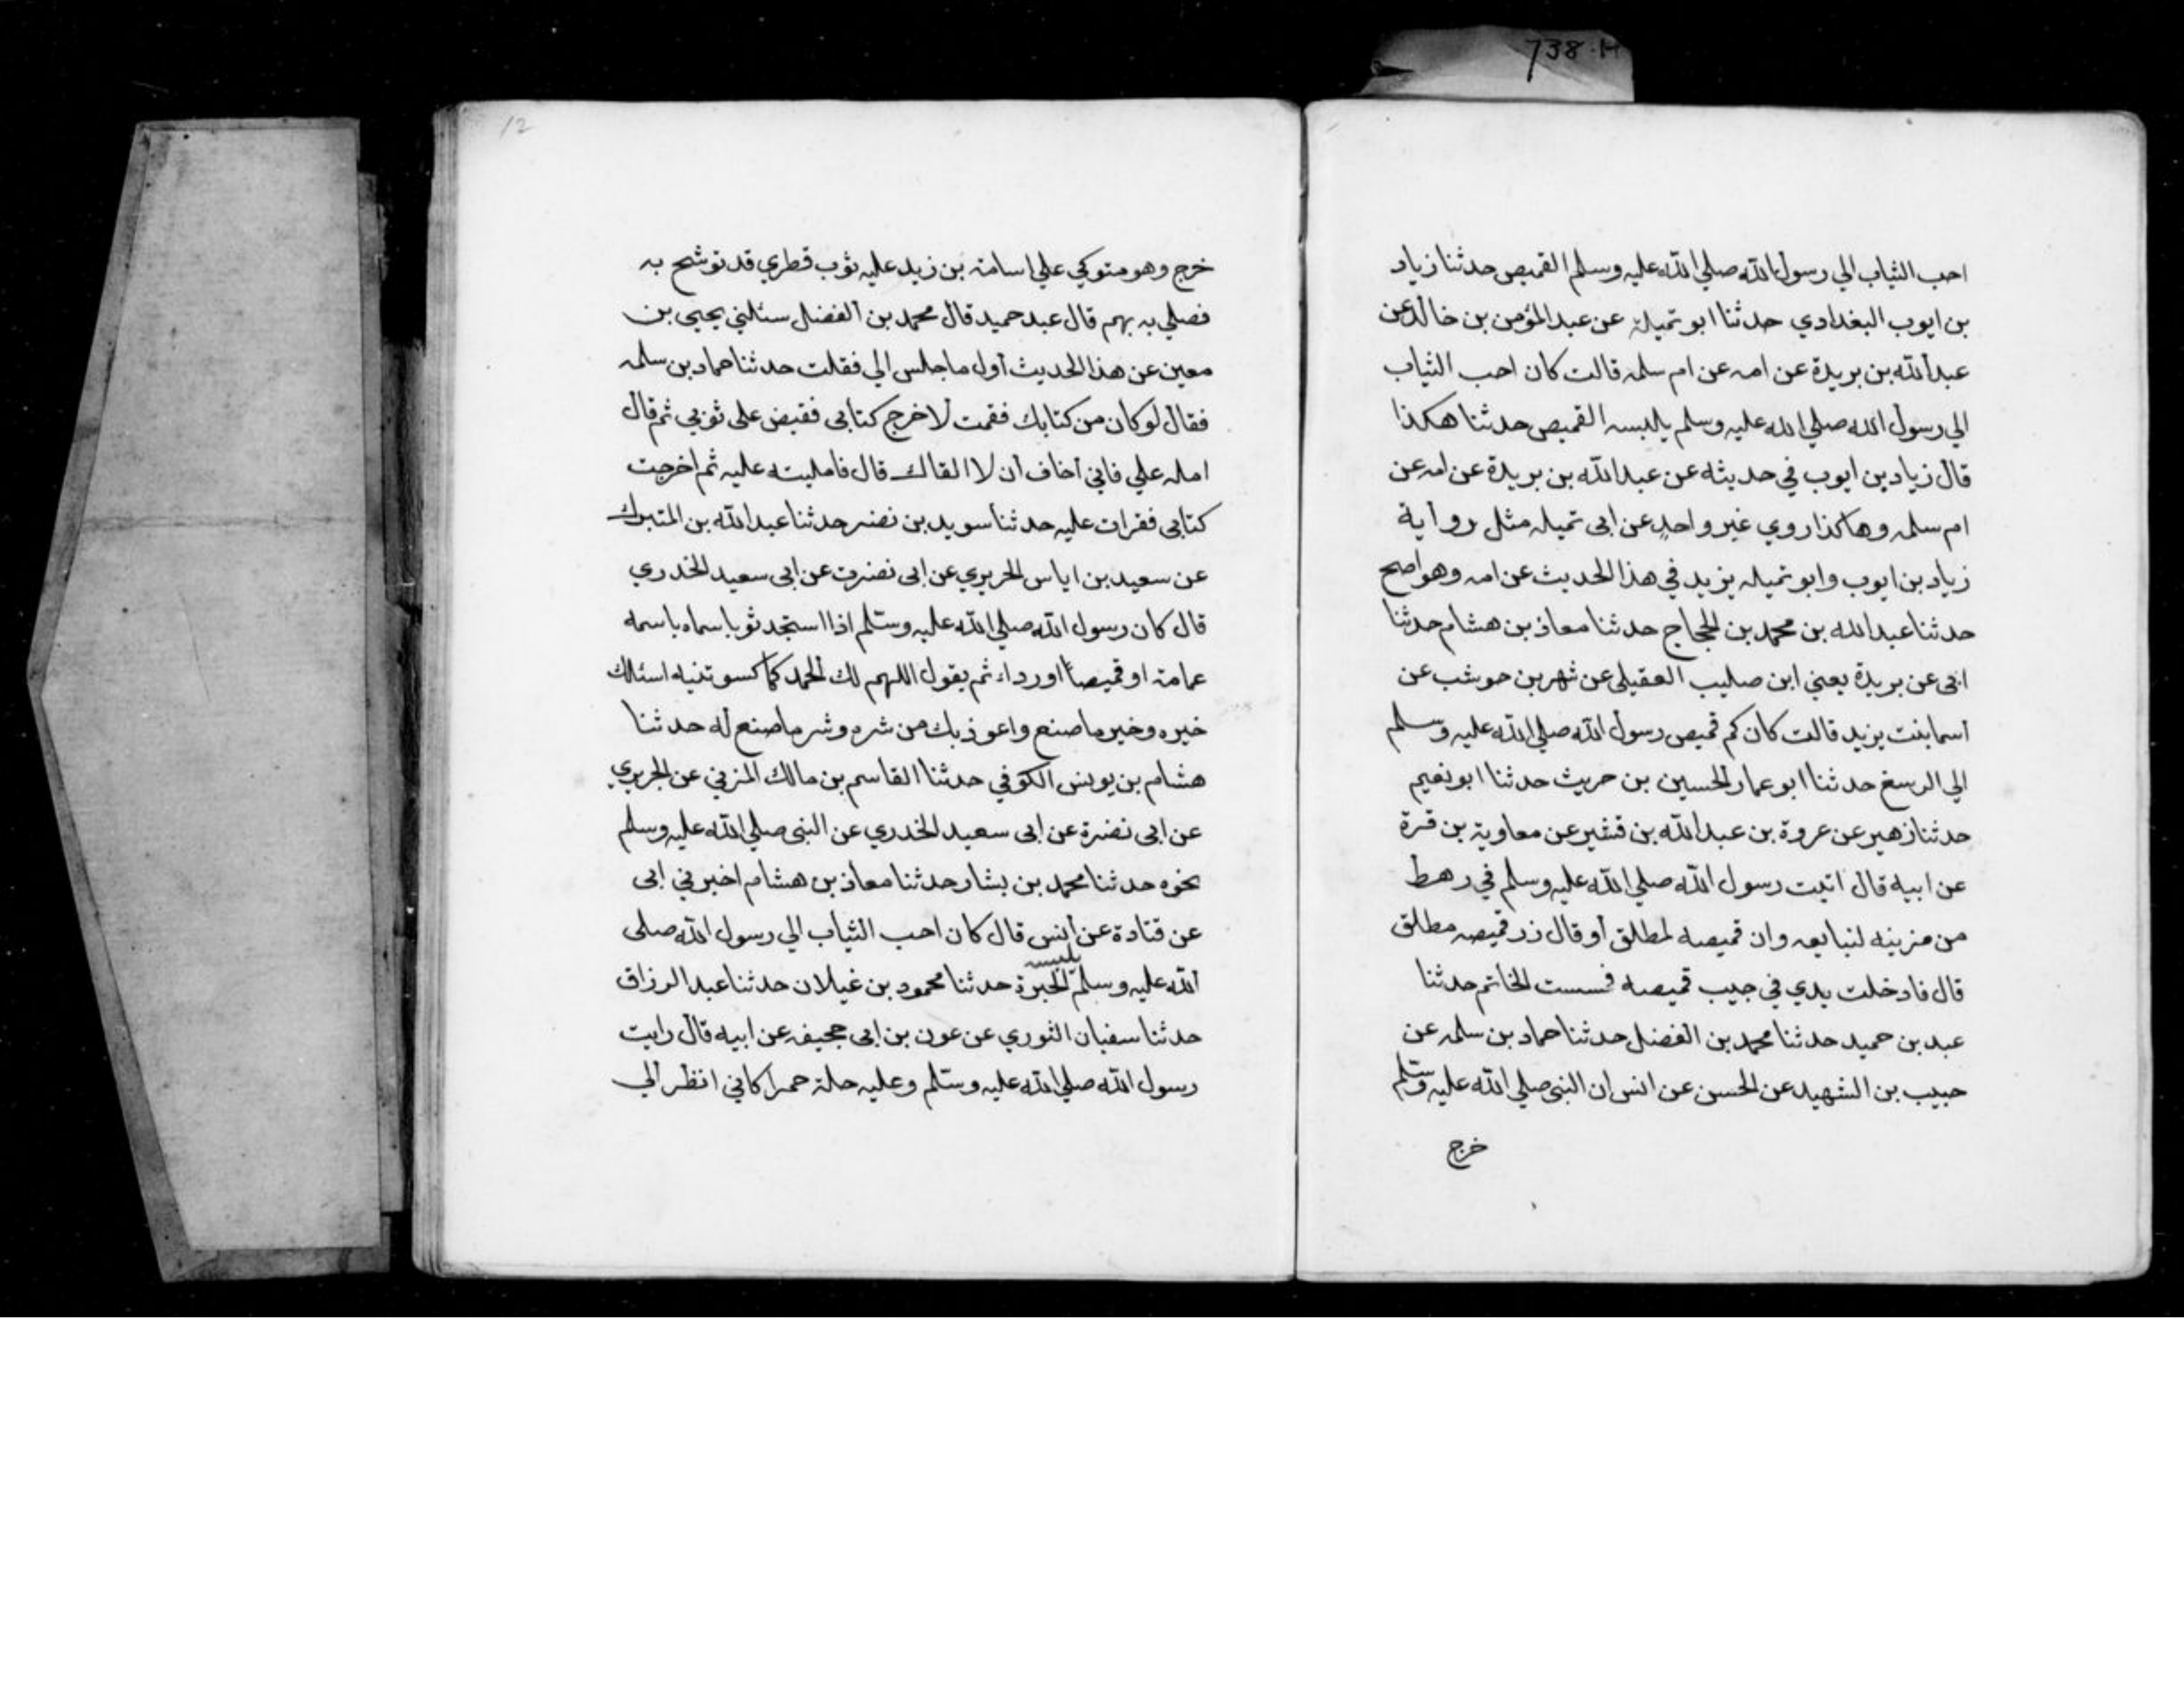 738·H
احب الثياب الي رسول الله صلي الله عليه وسلم القميص حدثنا زياد
بن ايوب البغدادي حدثنا ابو تميلة عن عبد المؤمن بن خالد عن
عبد الله بن بريدة عن امه عن ام سلمه قالت كان احب الثياب
الي رسول الله صلي الله عليه وسلم يلبسه القميص حدثنا هكذا
قال زياد بن ايوب في حديثه عن عبد الله بن بريدة عن امه عن
ام سلمه وهاكذا روي غير واحد عن ابى تميله مثل رواية
زياد بن ايوب وابو تميله يزيد في هذا الحديث عن امه وهو اصح
حدثنا عبد الله بن محمد بن الحجاج حدثنا معاذ بن هشام حدثنا
ابى عن بريدة يعني ابن صليب العقيلى عن شهر بن حوشب عن
اسما بنت يزيد قالت كان كم قميص رسول الله صلي الله عليه وسلم
الي الرسغ حدثنا ابو عمار الحسين بن حريث حدثنا ابو نعيم
حدثنا زهير عن عروة بن عبد الله بن قشير عن معاوية بن قرة
عن ابيه قال اتيت رسول الله صلي الله عليه وسلم في رهط
من مزينه لنبايعه وان قميصه لمطلق أو قال زر قميصه مطلق
قال فادخلت يدي في جيب قميصه فمسست الخاتم حدثنا
عبد بن حميد حدثنا محمد بن الفضل حدثنا حماد بن سلمه عن
حبيب بن الشهيد عن الحسن عن انس ان النبى صلي الله عليه وسلم
خرج
12
خرج وهو متوكي علي اسامة بن زيد عليه ثوب قطري قد توشح به
فصلي به بهم قال عبد حميد قال محمد بن الفضل سئلني يحيى بن
معين عن هذا الحديث أول ما جلس الي فقلت حدثنا حماد بن سلمه
فقال لو كان من كتابك فقمت لاخرج كتابى فقبض على ثوبي ثم قال
امله علي فاني أخاف أن لا القاك قال فامليته عليه ثم اخرجت
كتابى فقرات عليه حدثنا سويد بن نضر حدثنا عبد الله بن المتبرك
عن سعيد بن اياس الحريري عن ابى نضرة عن ابى سعيد الخدري
قال كان رسول الله صلي الله عليه وسلم اذا استجد ثوبا سماه باسمه
عمامة او قميصاً اورداء ثم يقول اللهم لك الحمد كما كسوتنيه اسئلك
خيره وخير ما صنع واعوذ بك من شره وشر ما صنع له حدثنا
هشام بن يونس الكوفي حدثنا القاسم بن مالك المزني عن الجريري
عن ابى نضرة عن ابى سعيد الخدري عن النبى صلي الله عليه وسلم
نحوه حدثنا محمد بن بشار حدثنا معاذ بن هشام اخبرني ابى
عن قتادة عن أنس قال كان احب الثياب الي رسول الله صلى
يلبسه
الله عليه وسلم الحبرة حدثنا محمود بن غيلان حدثنا عبد الرزاق
حدثنا سفيان الثوري عن عون بن ابى جحيفه عن ابيه قال رايت
رسول الله صلي الله عليه وسلم وعليه حلة حمرا كاني انظر الي